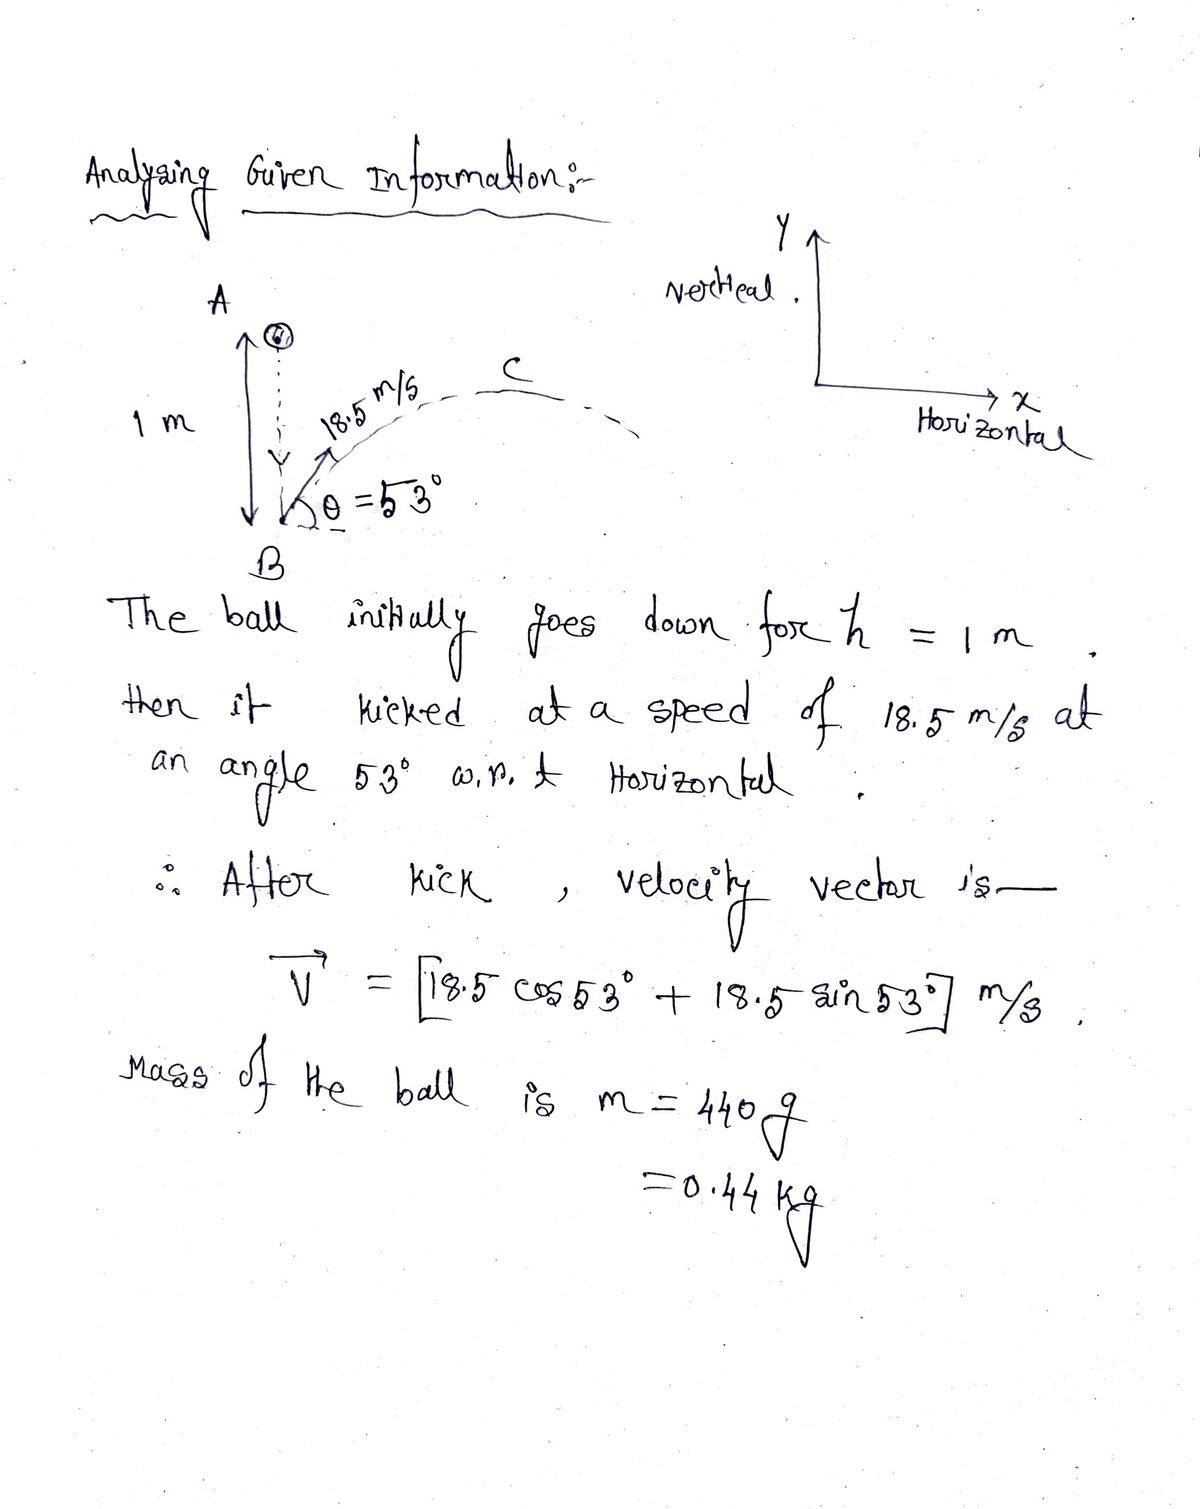 Analyzing Given Information:-
Y
Vertical.
X
Horizontal
A
1 m
18.5 m/s
C
θ = 53°
B
The ball initially goes down for h = 1 m.
then it kicked at a speed of 18.5 m/s at
an angle 53° w.r.t Horizontal.
∴ After kick, velocity vector is—
V⃗ = [18.5 cos 53° + 18.5 sin 53°] m/s.
Mass of the ball is m = 440 g
= 0.44 kg